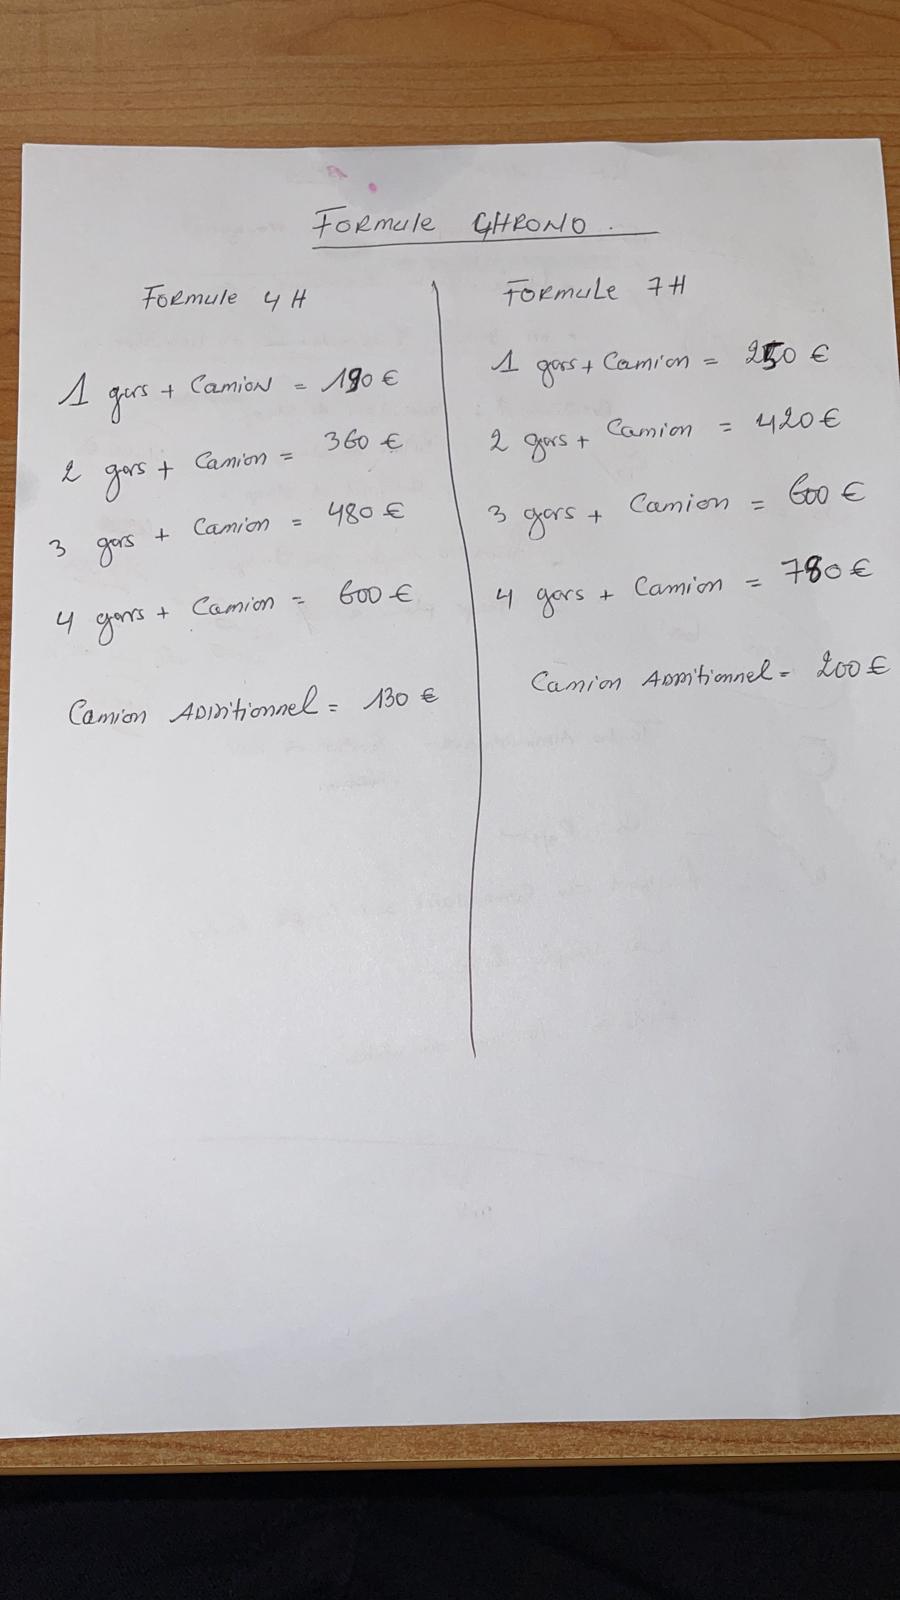 FORMULE CHRONO.
FORMULE 4H
1 gars + Camion = 190 €
2 gars + Camion = 360 €
3 gars + Camion = 480 €
4 gars + Camion = 600 €
Camion Additionnel = 130 €
FORMULE 7H
1 gars + Camion = 250 €
2 gars + Camion = 420 €
3 gars + Camion = 600 €
4 gars + Camion = 780 €
Camion Additionnel = 200 €